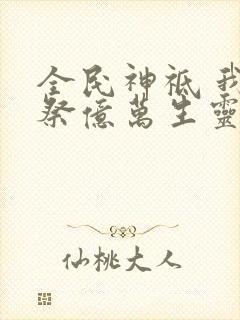 全民神祇 我
祭億萬生靈
仙桃大人